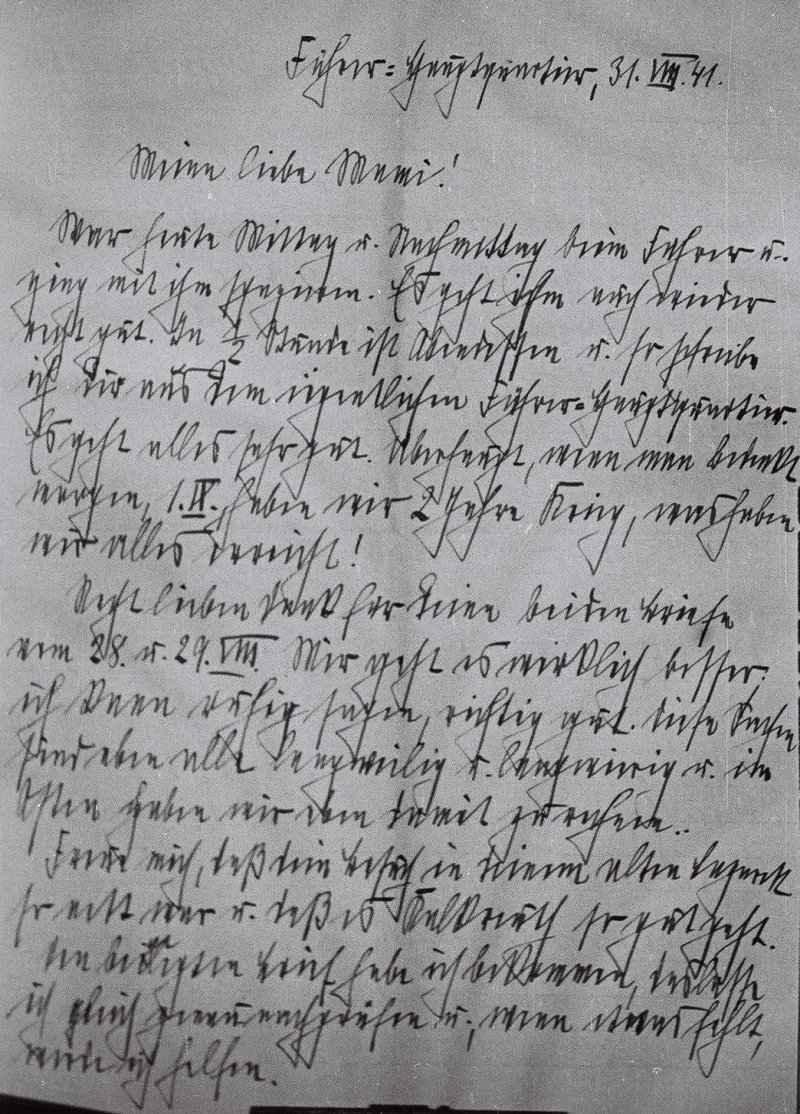 Führer=Hauptquartier, 31.VIII.41.
Meine liebe Mami!
War heute Mittag u. Nachmittag beim Führer u.
ging mit ihm spazieren. Es geht ihm auch wieder
recht gut. In ½ Stunde ist Abendessen u. so schreibe
ich Dir aus dem eigentlichen Führer=Hauptquartier.
Es geht alles sehr gut. Überhaupt, wenn man bedenkt
morgen, 1.IX., haben wir 2 Jahre Krieg, was haben
wir alles erreicht!
Recht lieben Dank für Deine beiden Briefe
vom 28. u. 29.VIII. Mir geht es wirklich besser.
ich kann ruhig sagen, richtig gut. Diese Sachen
sind eben alle langweilig u. langwierig u. im
Osten haben wir eben damit zu rechnen..
Freue mich, daß Dein Besuch in Deinem alten Lazarett
so nett war u. daß es Kalkreuth so gut geht.
Den Brief habe ich bekommen, das lasse
ich gleich genau nachprüfen u., wenn etwas fehlt,
werde ich helfen.